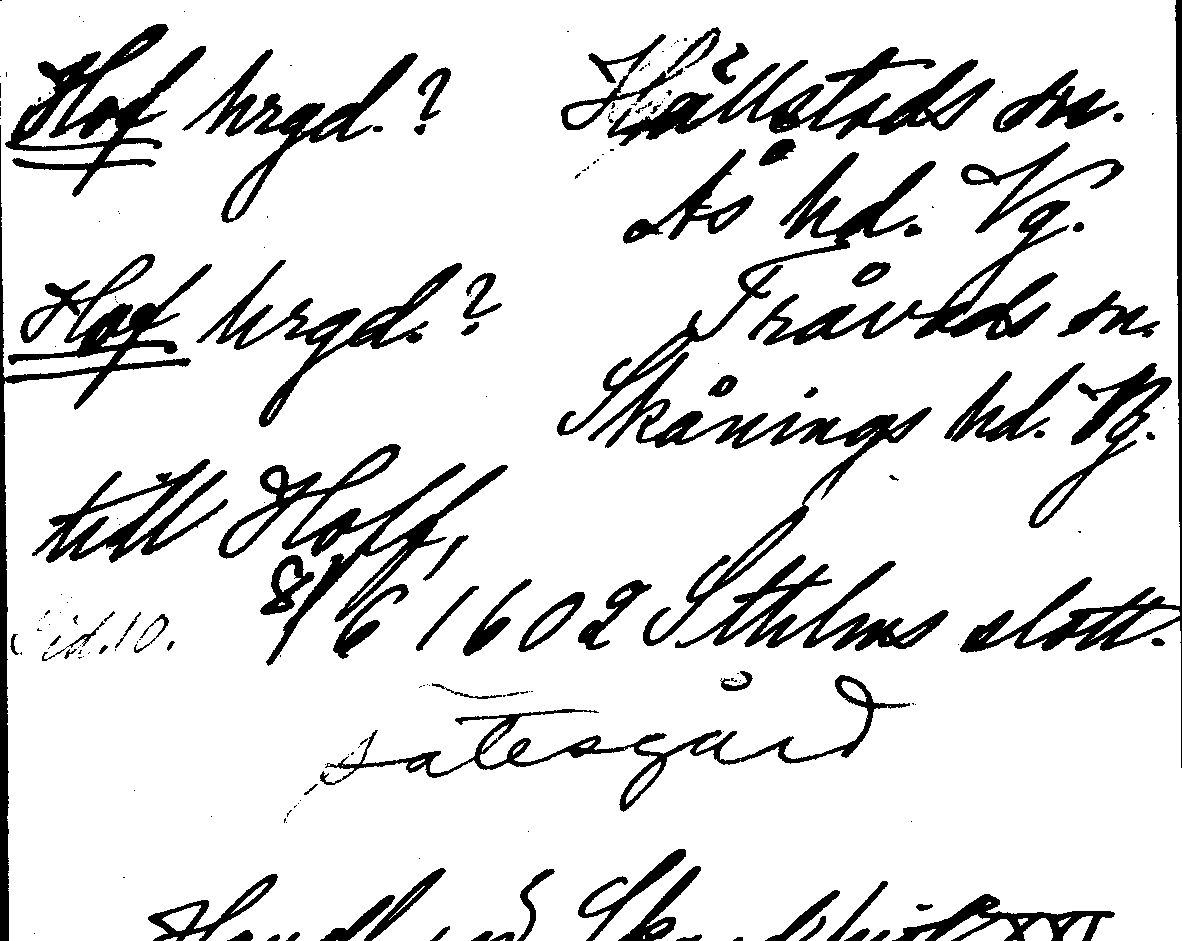 Hof hrgd.? Hällstads sn.
Ås hd. Vg.
Hof hrgd.? Tråvads sn.
Skånings hd. Vg.
till Hoff,
Sid. 10. 8/6 1602 Sthlms slott.
sätesgård
Handl. rör. Sk